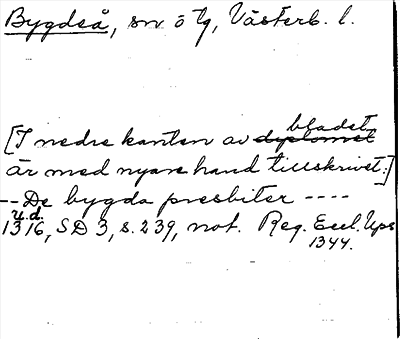 Bygdeå, sn ö tg, Västerb. l.
[I nedre kanten av diplomet bladet
är med nyare hand tillskrivet:]
-- De bygda presbiter ----
u.d.
1316, SD 3, s. 239, not. Reg. Eccl. Ups
1344.